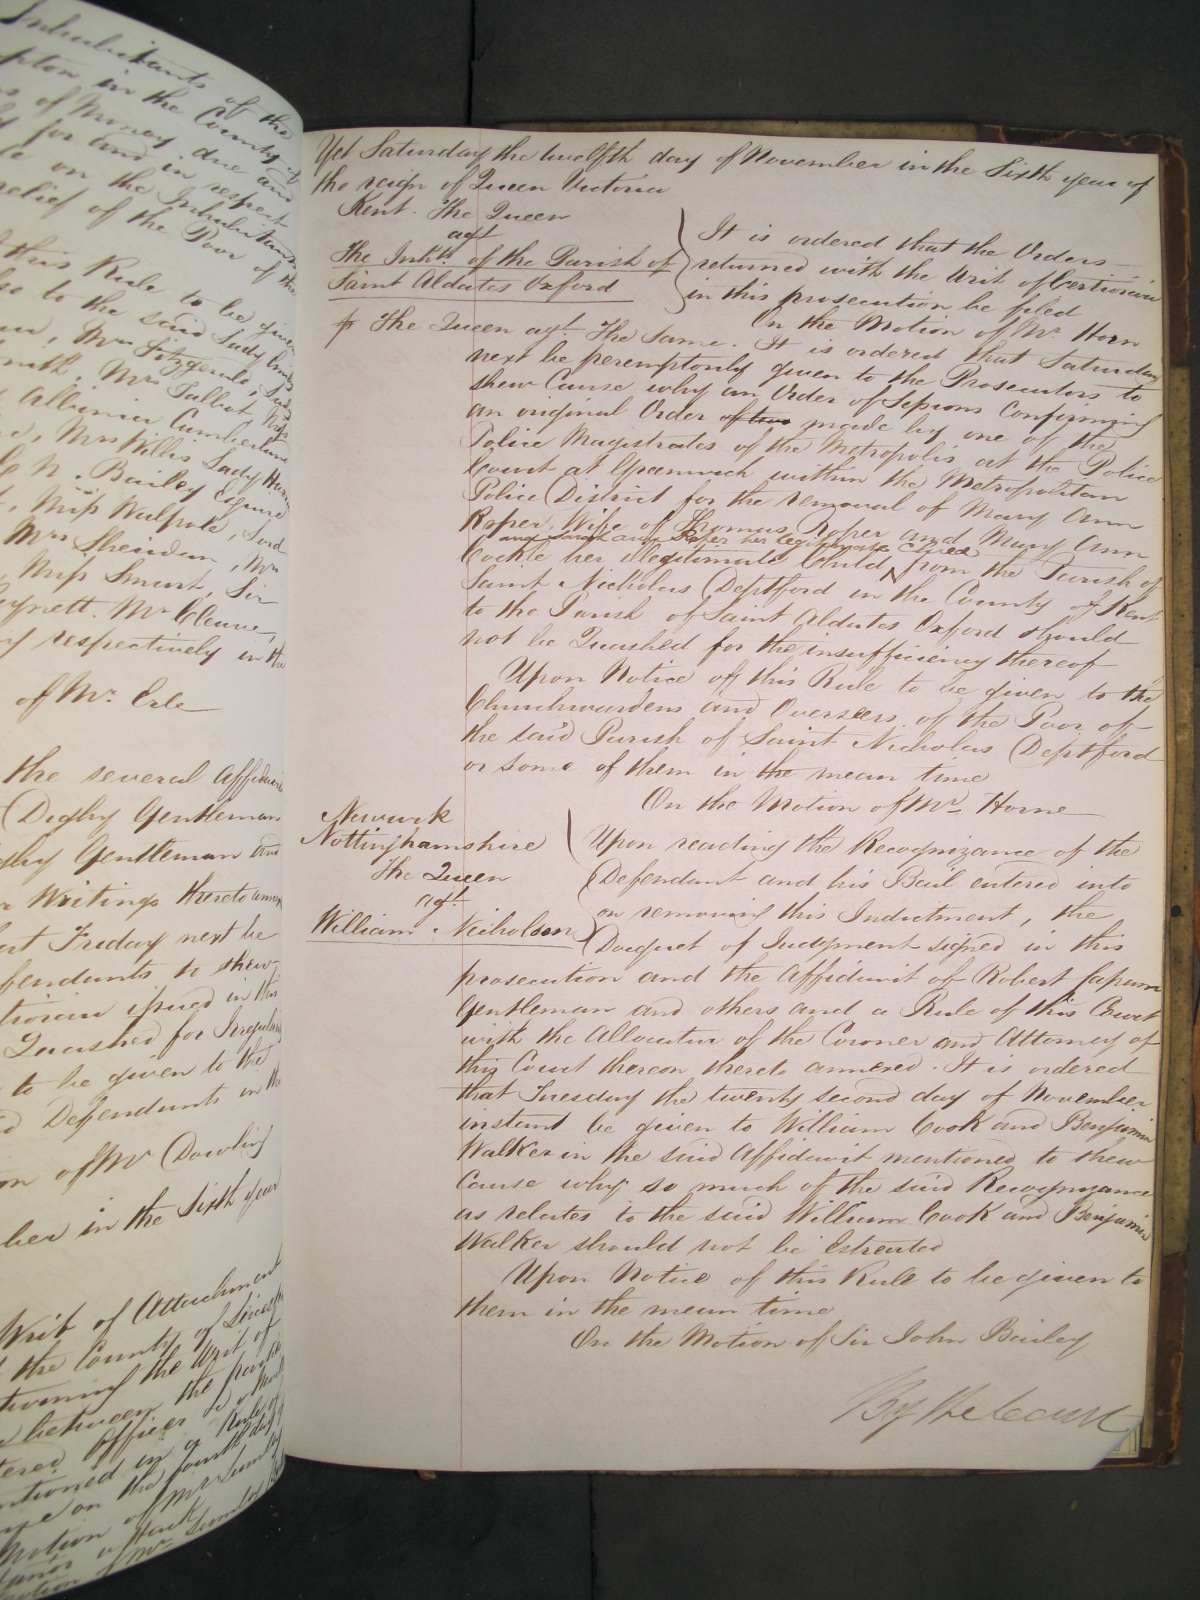 Inhabitants of the
pton in the County of
s of Money due and
d for and in respect
on the Inhabitants
relief of the Poor of the
this Rule to be given
to the said Lady
Mrs Fitzgerald,
Smith, Mrs Talbot, Mrs
Albinia Cumberland
Mrs Willis Lady
N. Bailey Esquire
Miss Walpole, Lord
Mrs Sheridan, Mrs
Miss Smart, Sir
Mr Cleave,
respectively in the
of Mr. Erle
the several Affidavits
Digby Gentleman
Gentleman and
Writings thereto annexed
Friday next be
fendants to shew
tiorari issued in this
Quashed for Irregularity
to be given to the
Defendants in the
on of Mr Dowling
ber in the Sixth year
Writ of Attachment
the County of
the Writ of
between the
Officer
mentioned in a Rule of
on the fourth day of
Motion of Mr
Yet Saturday the twelfth day of November in the Sixth year of
the reign of Queen Victoria
Kent. The Queen
agt
The Inhts. of the Parish of
Saint Aldates Oxford
It is ordered that the Orders
returned with the Writ of Certiorari
in this prosecution be filed
On the Motion of Mr. Horn
The Queen agt. The Same. It is ordered that Saturday
next be peremptorily given to the Prosecutors to
shew Cause why an Order of Sessions Confirming
an original Order of two made by one of the
Police Magistrates of the Metropolis at the Police
Court at Greenwich within the Metropolitan
Police District for the removal of Mary Ann
Roper Wife of Thomas Roper and Mary Ann
and Sarah Ann Roper her legitimate Child
Cockle her illegitimate Child from the Parish of
Saint Nicholas Deptford in the County of Kent
to the Parish of Saint Aldates Oxford should
not be Quashed for the insufficiency thereof
Upon Notice of this Rule to be given to the
Churchwardens and Overseers of the Poor of
the said Parish of Saint Nicholas Deptford
or some of them in the mean time
On the Motion of Mr. Horne
Newark
Nottinghamshire
The Queen
agt.
William Nicholson
Upon reading the Recognizance of the
Defendant and his Bail entered into
on removing this Indictment, the
Docquet of Judgment signed in this
prosecution and the Affidavit of Robert Capum
Gentleman and others and a Rule of this Court
with the Allocatur of the Coroner and Attorney of
this Court thereon thereto annexed. It is ordered
that Tuesday the twenty second day of November
instant be given to William Cook and Benjamin
Walker in the said Affidavit mentioned to shew
Cause why so much of the said Recognizance
as relates to the said William Cook and Benjamin
Walker should not be Estreated
Upon Notice of this Rule to be given to
them in the mean time
On the Motion of Sir John Bailey
By the Court